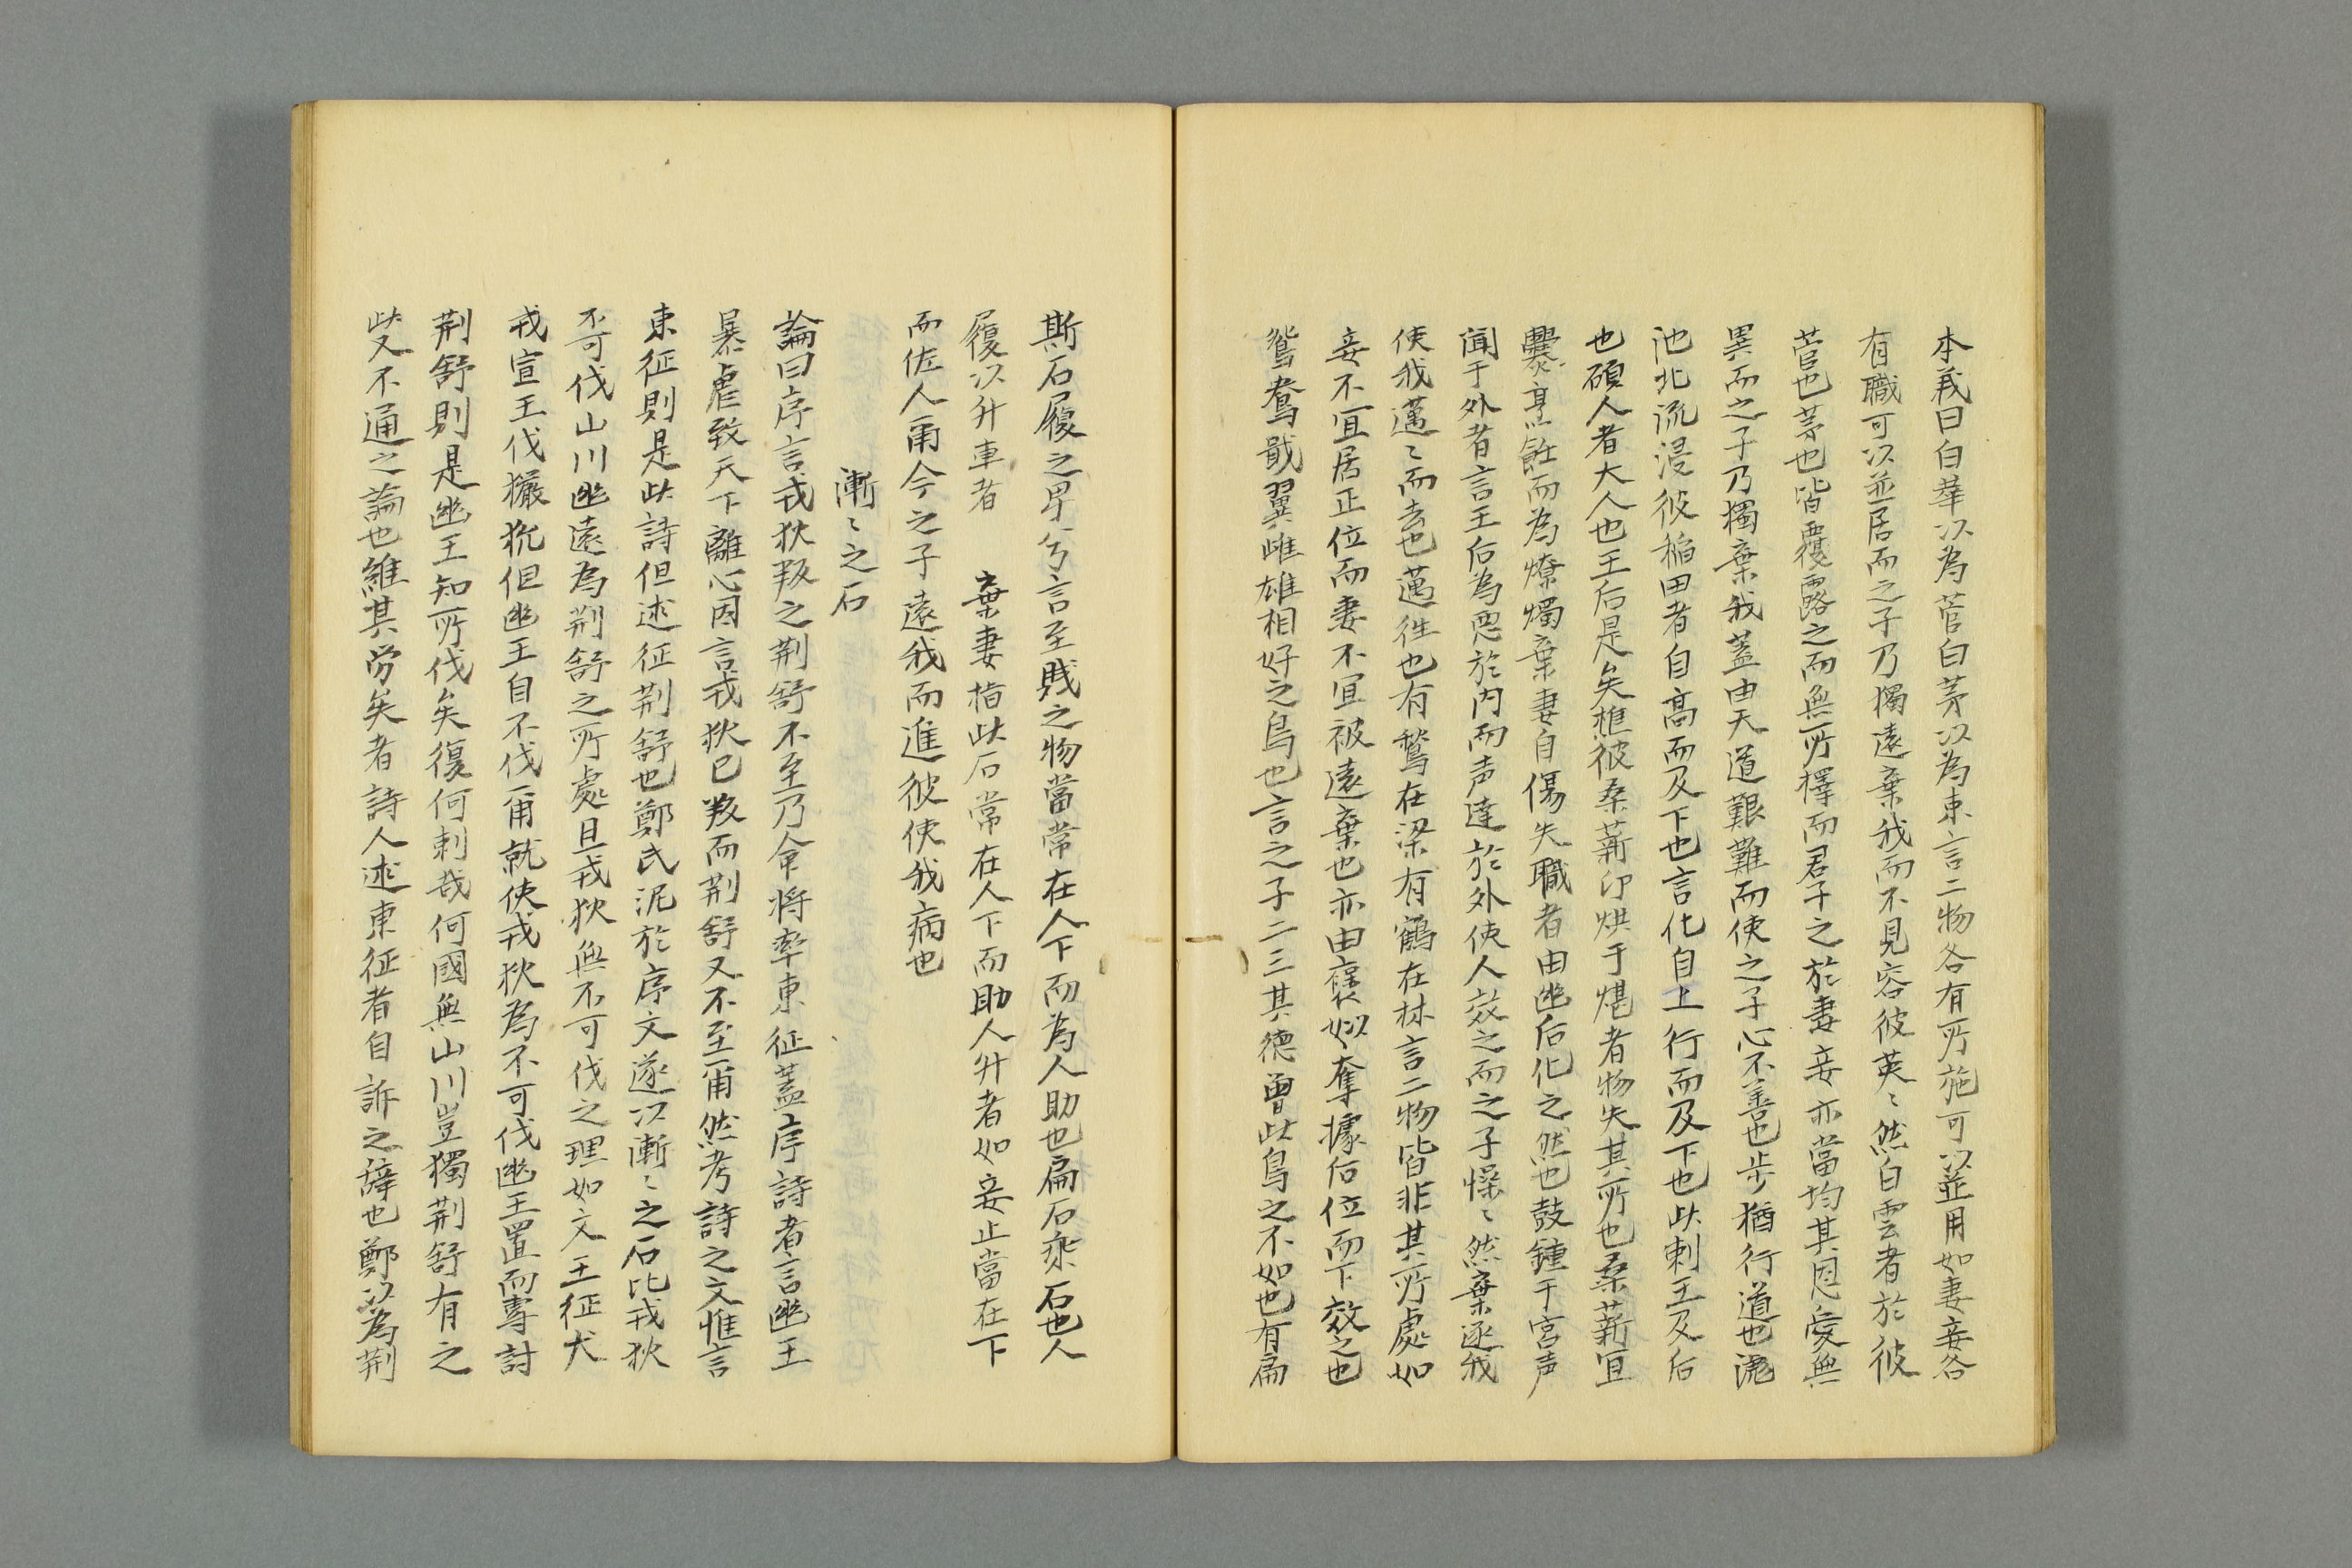 本義曰白華以為菅白茅以為束言二物各有所施可以並用如妻妾各
有職可以並居而之子乃獨遠棄我而不見容彼英〻然白雲者於彼
菅也茅也皆覆露之而無所擇而君子之於妻妾亦當均其恩愛無
異而之子乃獨棄我蓋由天道艱難而使之子心不善也步猶行道也滮
池北流浸彼稲田者自高而及下也言化自上行而及下也此刺王及后
也碩人者大人也王后是矣樵彼桑薪卬烘于煁者物失其所也桑薪宜
爨烹飪而為燎燭棄妻自傷失職者由幽后化之然也鼓鍾于宮声
聞于外者言王后為悪於内而声達於外使人效之而之子懆〻然棄逐我
使我邁〻而去也邁徃也有鶖在梁有鶴在林言二物皆非其所處如
妾不宜居正位而妻不宜被遠棄也亦由褒姒奪據后位而下效之也
鴛鴦戢翼雌雄相好之鳥也言之子二三其德曽此鳥之不如也有扁
斯石履之卑兮言至賎之物當常在人下而為人助也扁石乘石也人
履以升車者　棄妻指此石常在人下而助人升者如妾止當在下
而佐人爾今之子遠我而進彼使我病也
漸〻之石
論曰序言戎狄叛之荆舒不至乃命将率東征蓋序詩者言幽王
暴虐致天下離心因言戎狄已叛而荆舒又不至爾然考詩之文惟言
東征則是此詩但述征荆舒也鄭氏泥於序文遂以漸〻之石比戎狄
不可伐山川幽遠為荆舒之所處且戎狄無不可伐之理如文王征犬
戎宣王伐玁狁但幽王自不伐爾就使戎狄為不可伐幽王置而專討
荆舒則是幽王知所伐矣復何刺哉何國無山川豈獨荆舒有之
此又不通之論也維其勞矣者詩人述東征者自訴之辞也鄭以為荆